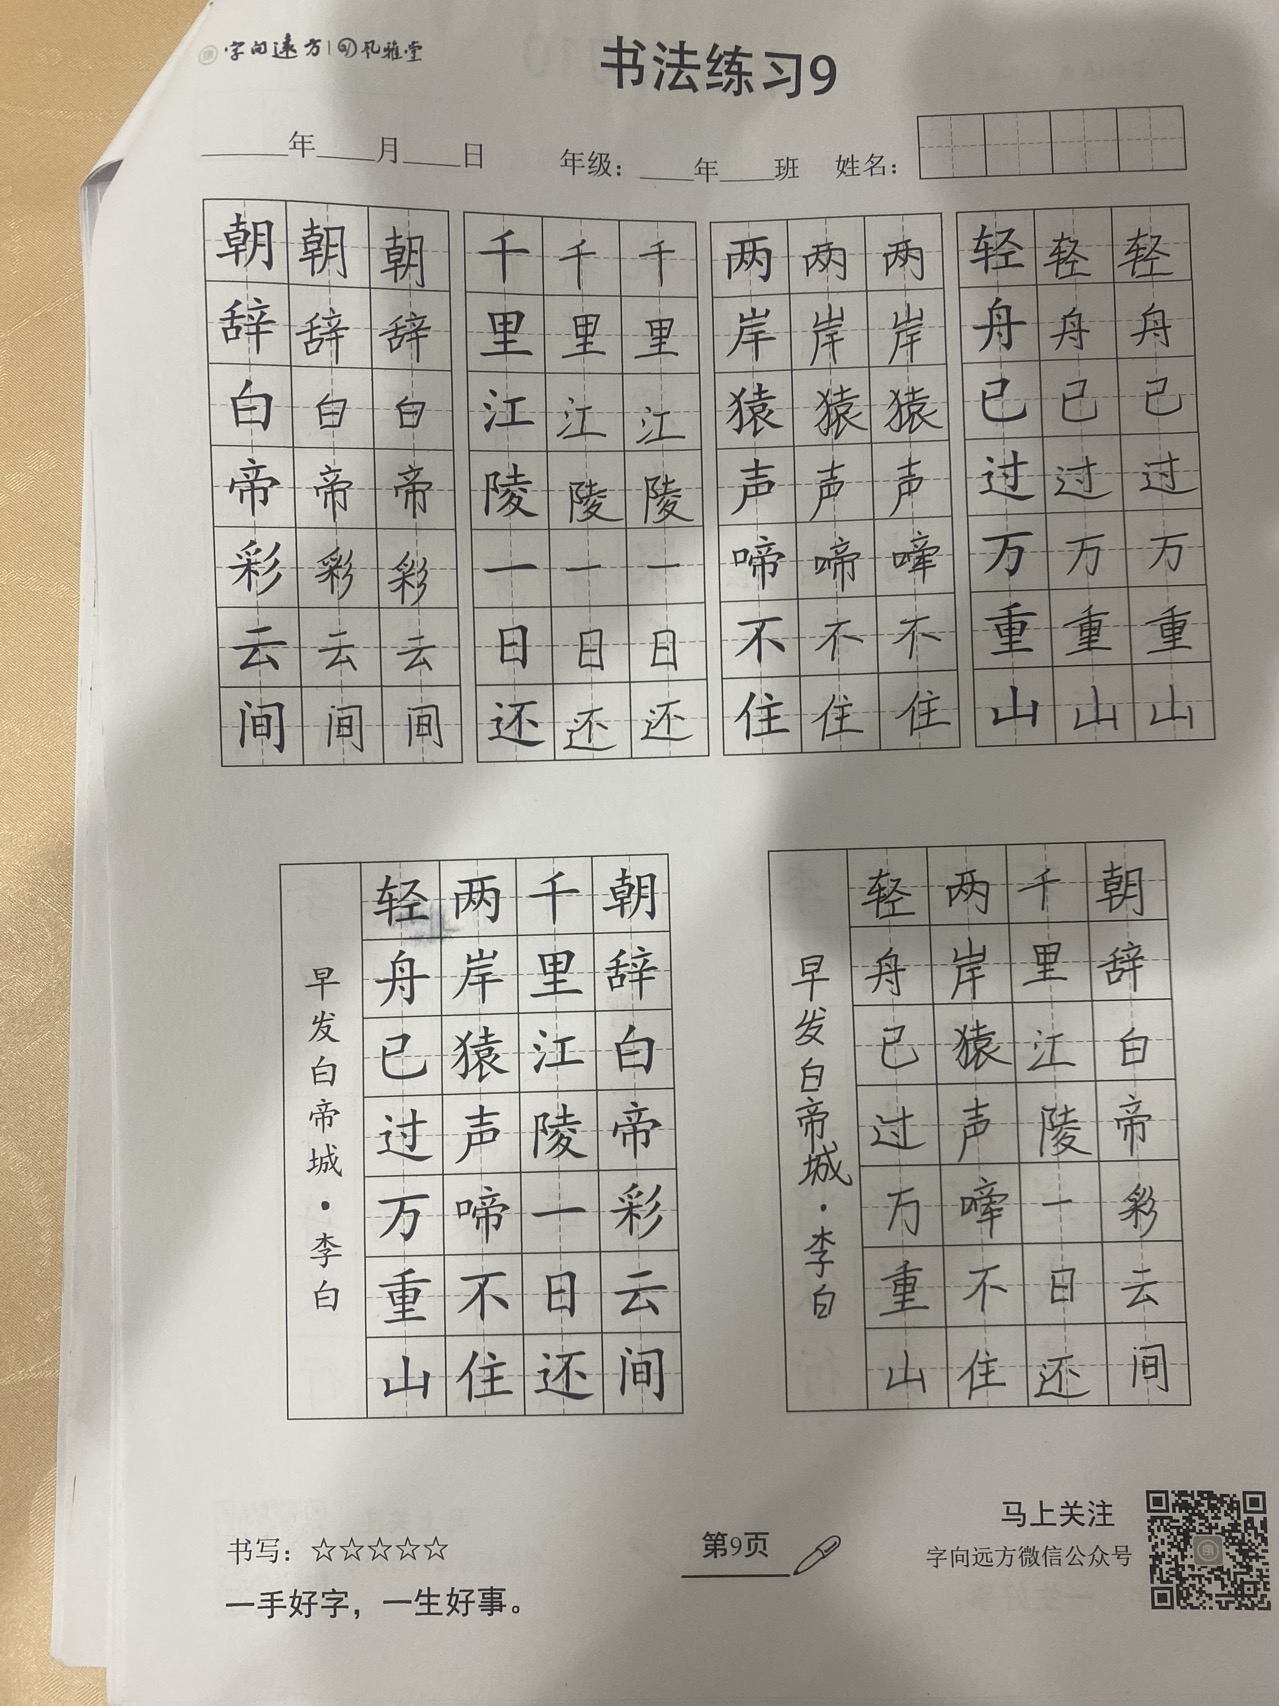 字向远方 风雅堂
书法练习9
年 月 日 年级： 年 班 姓名：
朝朝朝 千千千 两两两 轻轻轻
辞辞辞 里里里 岸岸岸 舟舟舟
白白白 江江江 猿猿猿 已已已
帝帝帝 陵陵陵 声声声 过过过
彩彩彩 一一一 啼啼啼 万万万
云云云 日日日 不不不 重重重
间间间 还还还 住住住 山山山
朝辞白帝彩云间
千里江陵一日还
两岸猿声啼不住
轻舟已过万重山
早发白帝城·李白
朝辞白帝彩云间
千里江陵一日还
两岸猿声啼不住
轻舟已过万重山
早发白帝城·李白
书写：☆☆☆☆☆
一手好字，一生好事。
第9页
马上关注
字向远方微信公众号